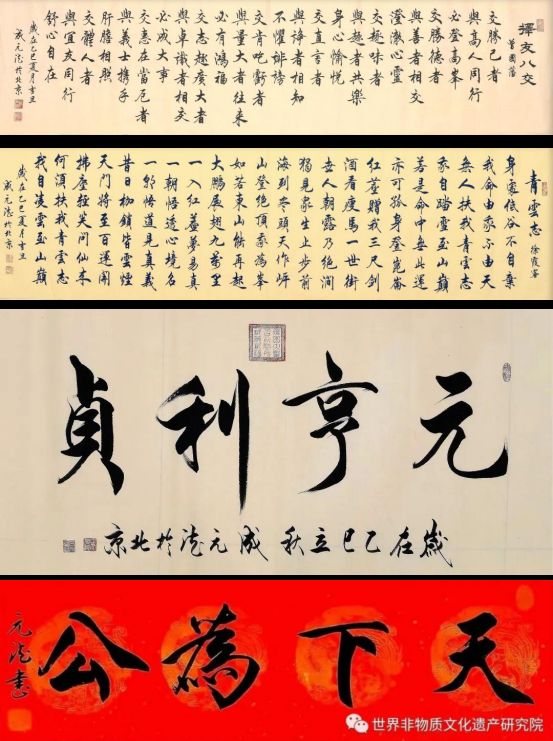 擇友八交
曾國藩
交勝己者
與高人同行
必登高峯
交勝德者
與善者相交
澄澈心靈
交趣味者
與趣者共樂
身心愉悅
交直言者
與諍者相知
不懼誹謗
交肯吃虧者
與量大者往來
必有鴻福
交志趣廣大者
與卓識者相交
必成大事
交惠在當厄者
與義士攜手
肝膽相照
交體人者
與宜友同行
舒心自在
歲在乙巳夏月吉旦
成元於北京
青雲志
徐霞客
身處低谷不自棄
我命由我不由天
無人扶我青雲志
我自踏雪至山巔
若是命中無此運
亦可孤身登崑崙
紅塵贈我三尺劍
酒看瘦馬一世街
世人朝露乃絕澗
獨見眾生止步前
海到盡頭天作岸
山登絕頂我為峯
如若東山能再起
大鵬展翅九萬里
一入紅塵萬易
一朝悟透心境
一朝悟道見真義
昔日枷鎖皆雲煙
天門將至百運開
拂塵輕笑問仙
何須扶我青雲志
我自凌雲至山巔
歲在乙巳夏月吉旦
成元於北京
元亨利貞
歲在乙巳立秋 成元於北京
天下為公
元書
世界非物质文化遗产研究院